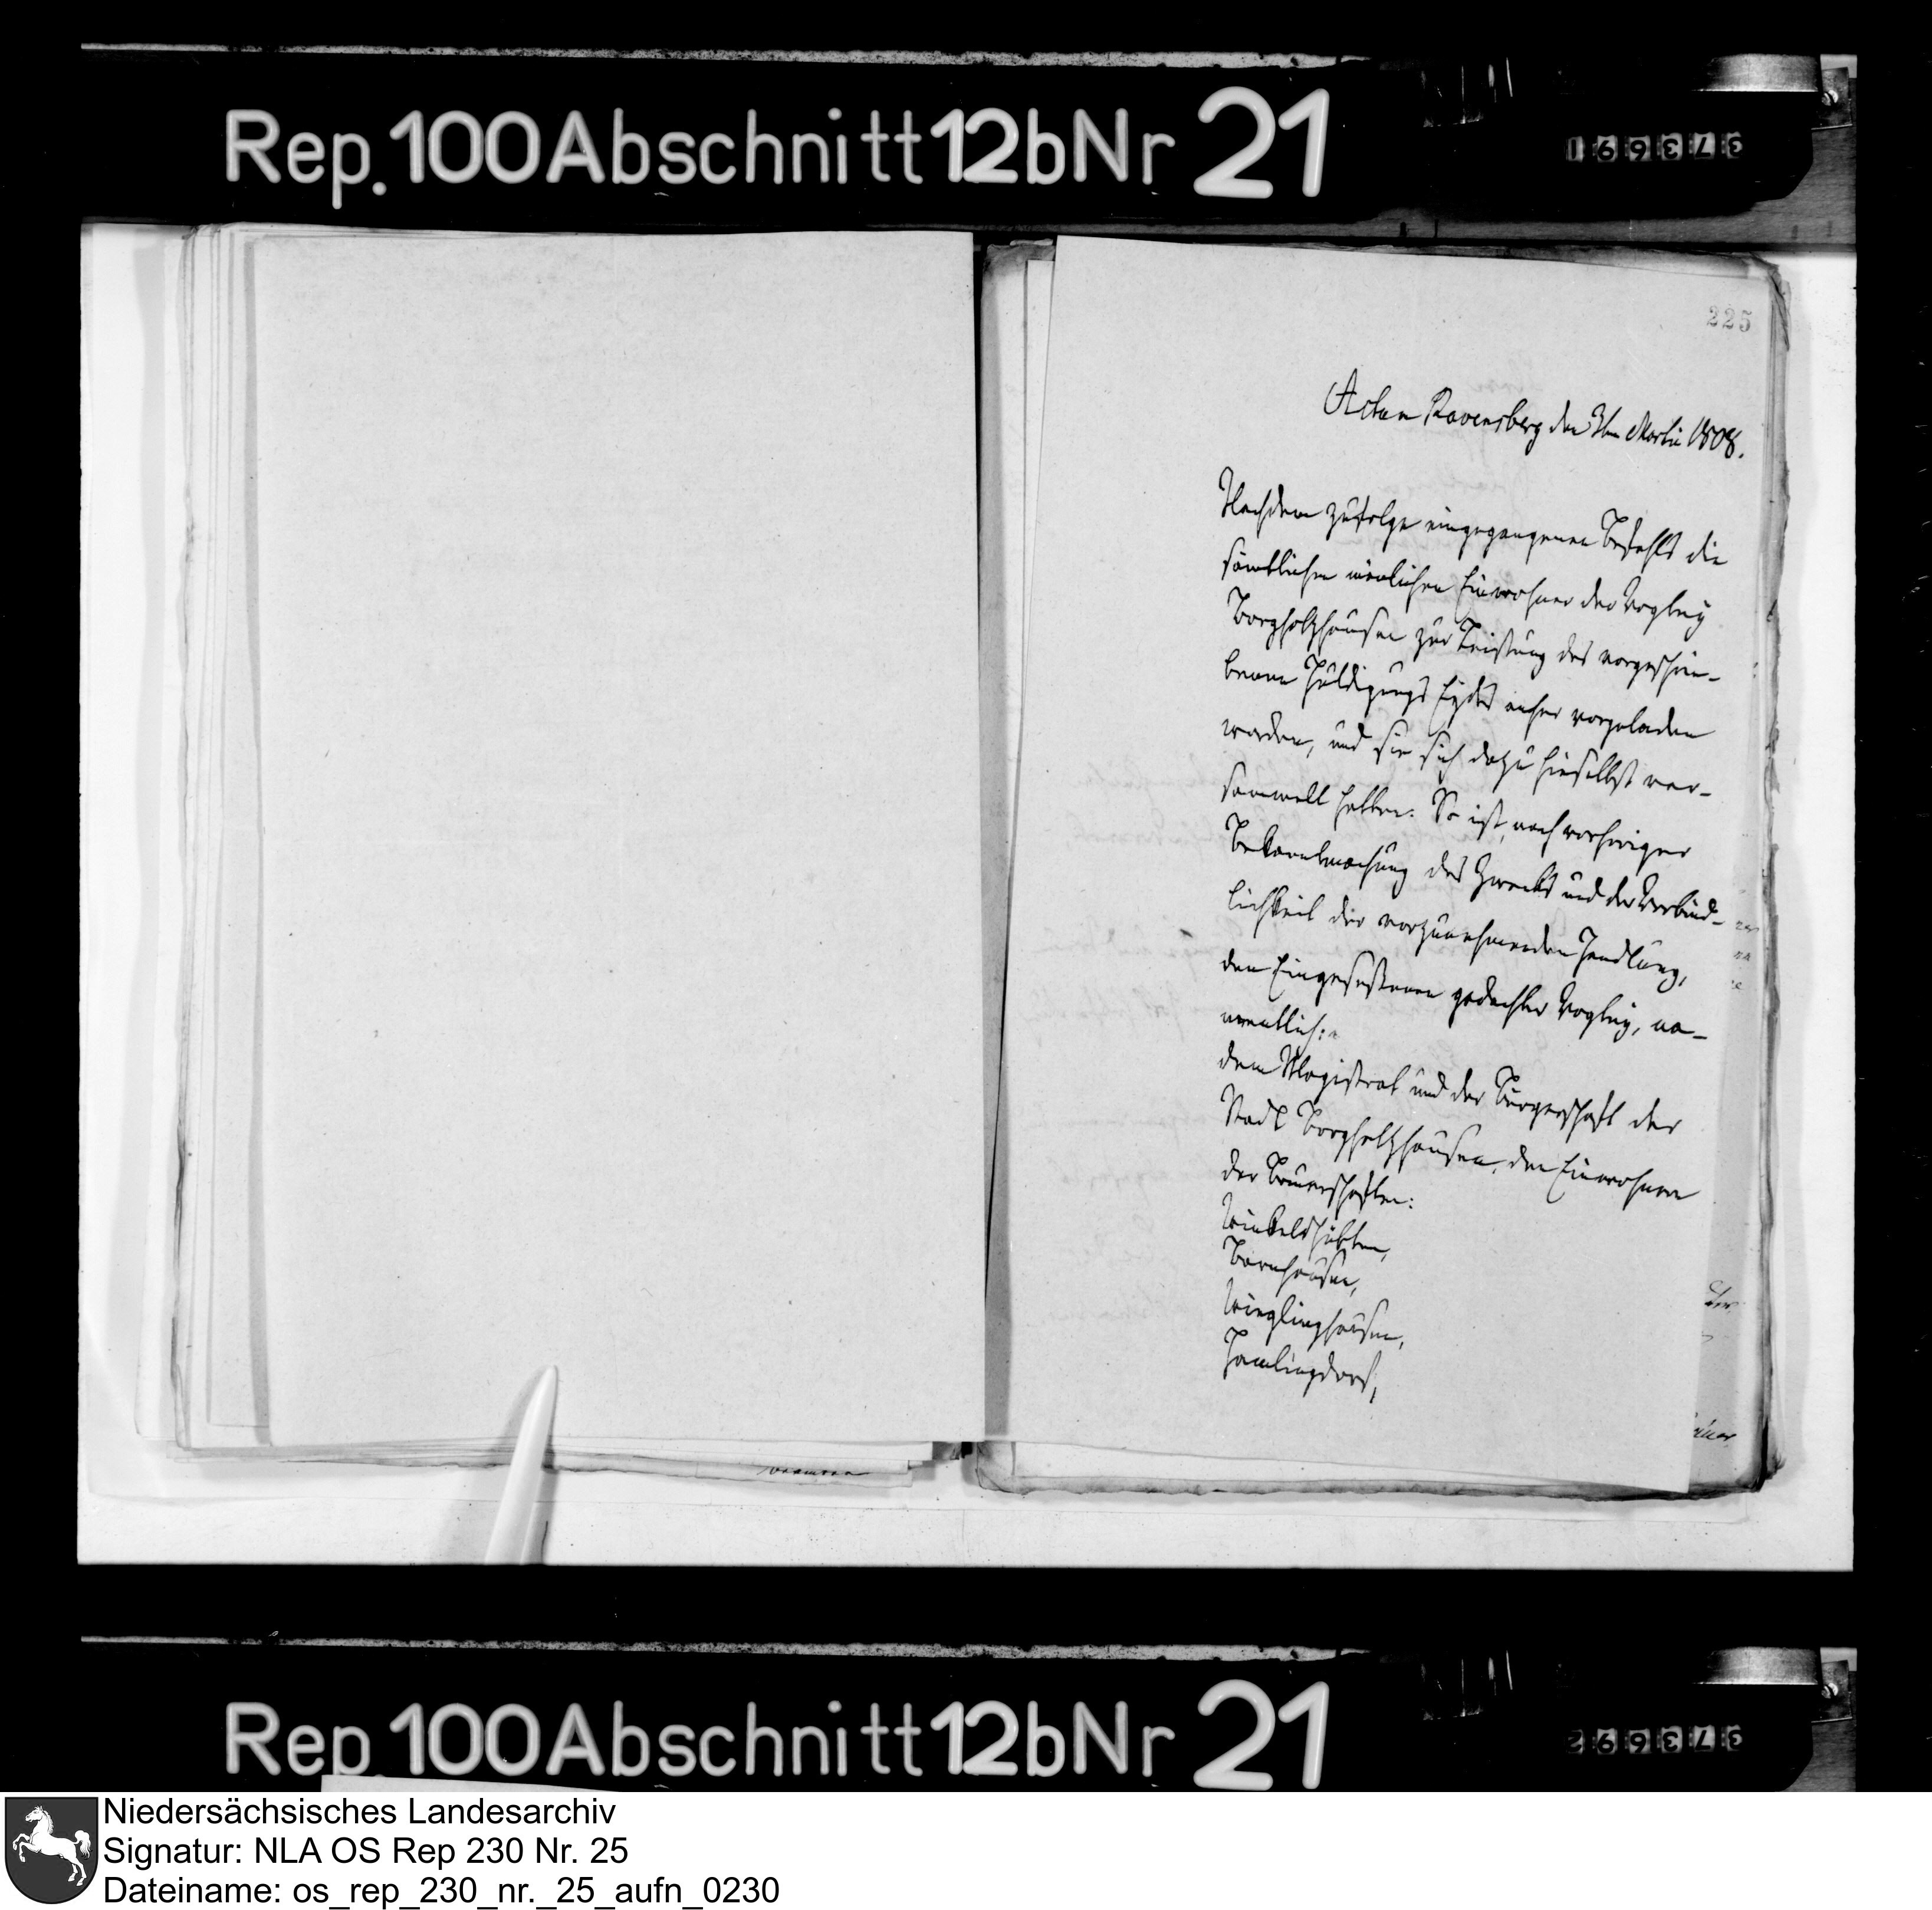 Rep. 100 Abschnitt 12b Nr 21
373691
225
Actum Ravensberg den 3ten Martii 1808.
Nachdem zufolge eingegangenen Befehls die
sämtlichen mänlichen Einwohner der Vogtey
Borgholtzhausen zur Leistung des vorgeschrie-
benen Huldigungs Eydes anher vorgeladen
worden, und sie sich dazu hieselbst ver-
sammelt hatten. So ist, nach vorheriger
Bekantmachung des Zwecks und der Verbind-
lichkeit der vorzunehmenden Handlung,
den Eingeseßenen gedachter Vogtey, na-
mentlich:
dem Magistrat und der Bürgerschaft der
Stadt Borgholtzhausen, den Einwohnern
der Bauerschaften:
Winkelshütten,
Barnhausen,
Wichlinghausen,
Hamlingdorf,
Rep. 100 Abschnitt 12b Nr 21
373692
Niedersächsisches Landesarchiv
Signatur: NLA OS Rep 230 Nr. 25
Dateiname: os_rep_230_nr._25_aufn_0230